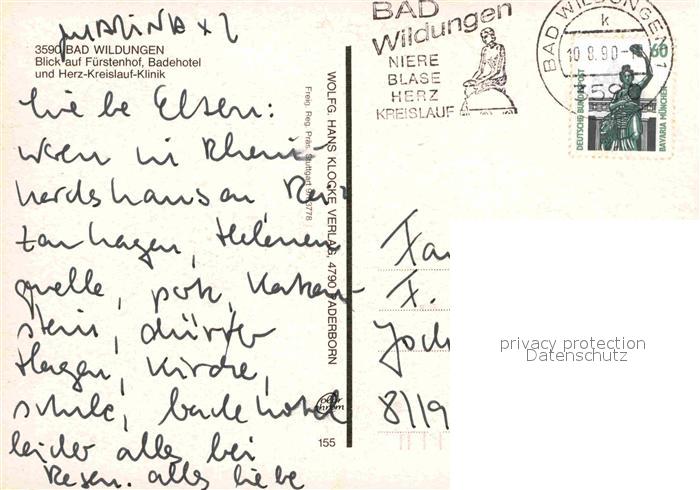 MARINA + 2
3590 BAD WILDUNGEN
Blick auf Fürstenhof, Badehotel
und Herz-Kreislauf-Klinik
liebe Eltern:
waren in Rhein
hardshausen, Rein
zanhagen, Helenen
quelle, park,
stein, dürfer
Hagen, Kirche,
schule, badehotel
leider alles bei
Regen. alles liebe
WOLFG. HANS KLOCKE VERLAG, 4790 PADERBORN
Freig. Reg. Präs. Stuttgart
155
BAD
Wildungen
NIERE
BLASE
HERZ
KREISLAUF
BAD WILDUNGEN 1
k
10.8.90-1
3590
60
DEUTSCHE BUNDESPOST
BAVARIA MÜNCHEN
Fa
F.
Joch
8/19
privacy protection
Datenschutz